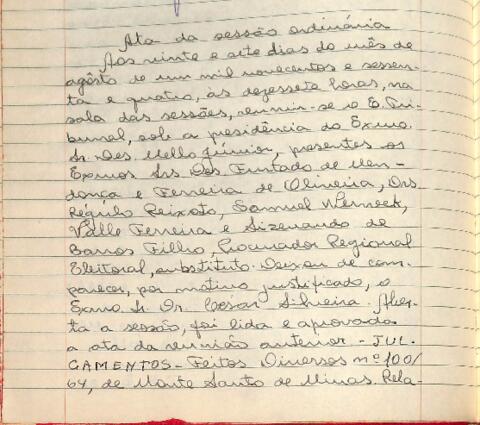 Ata da sessão ordinária
Aos vinte e sete dias do mês de
agôsto de um mil novecentos e sessen-
ta e quatro, às dezessete horas, na
sala das sessões, reuniu-se o E. Tri-
bunal, sob a presidência do Exmo.
Sr. Des. Mello Júnior, presentes os
Exmos Srs. Des. Furtado de Men-
donça e Ferreira de Oliveira, Drs.
Régulo Peixoto, Samuel Werneck,
Valle Ferreira e Sizenando de
Barros Filho, Procurador Regional
Eleitoral, substituto. Deixou de com-
parecer, por motivo justificado, o
Exmo. Sr. Dr. Cesar Silveira. Aber-
ta a sessão, foi lida e aprovada
a ata da reunião anterior - JUL
GAMENTOS - Feitos Diversos nº 100/
64, de Monte Santo de Minas. Rela-